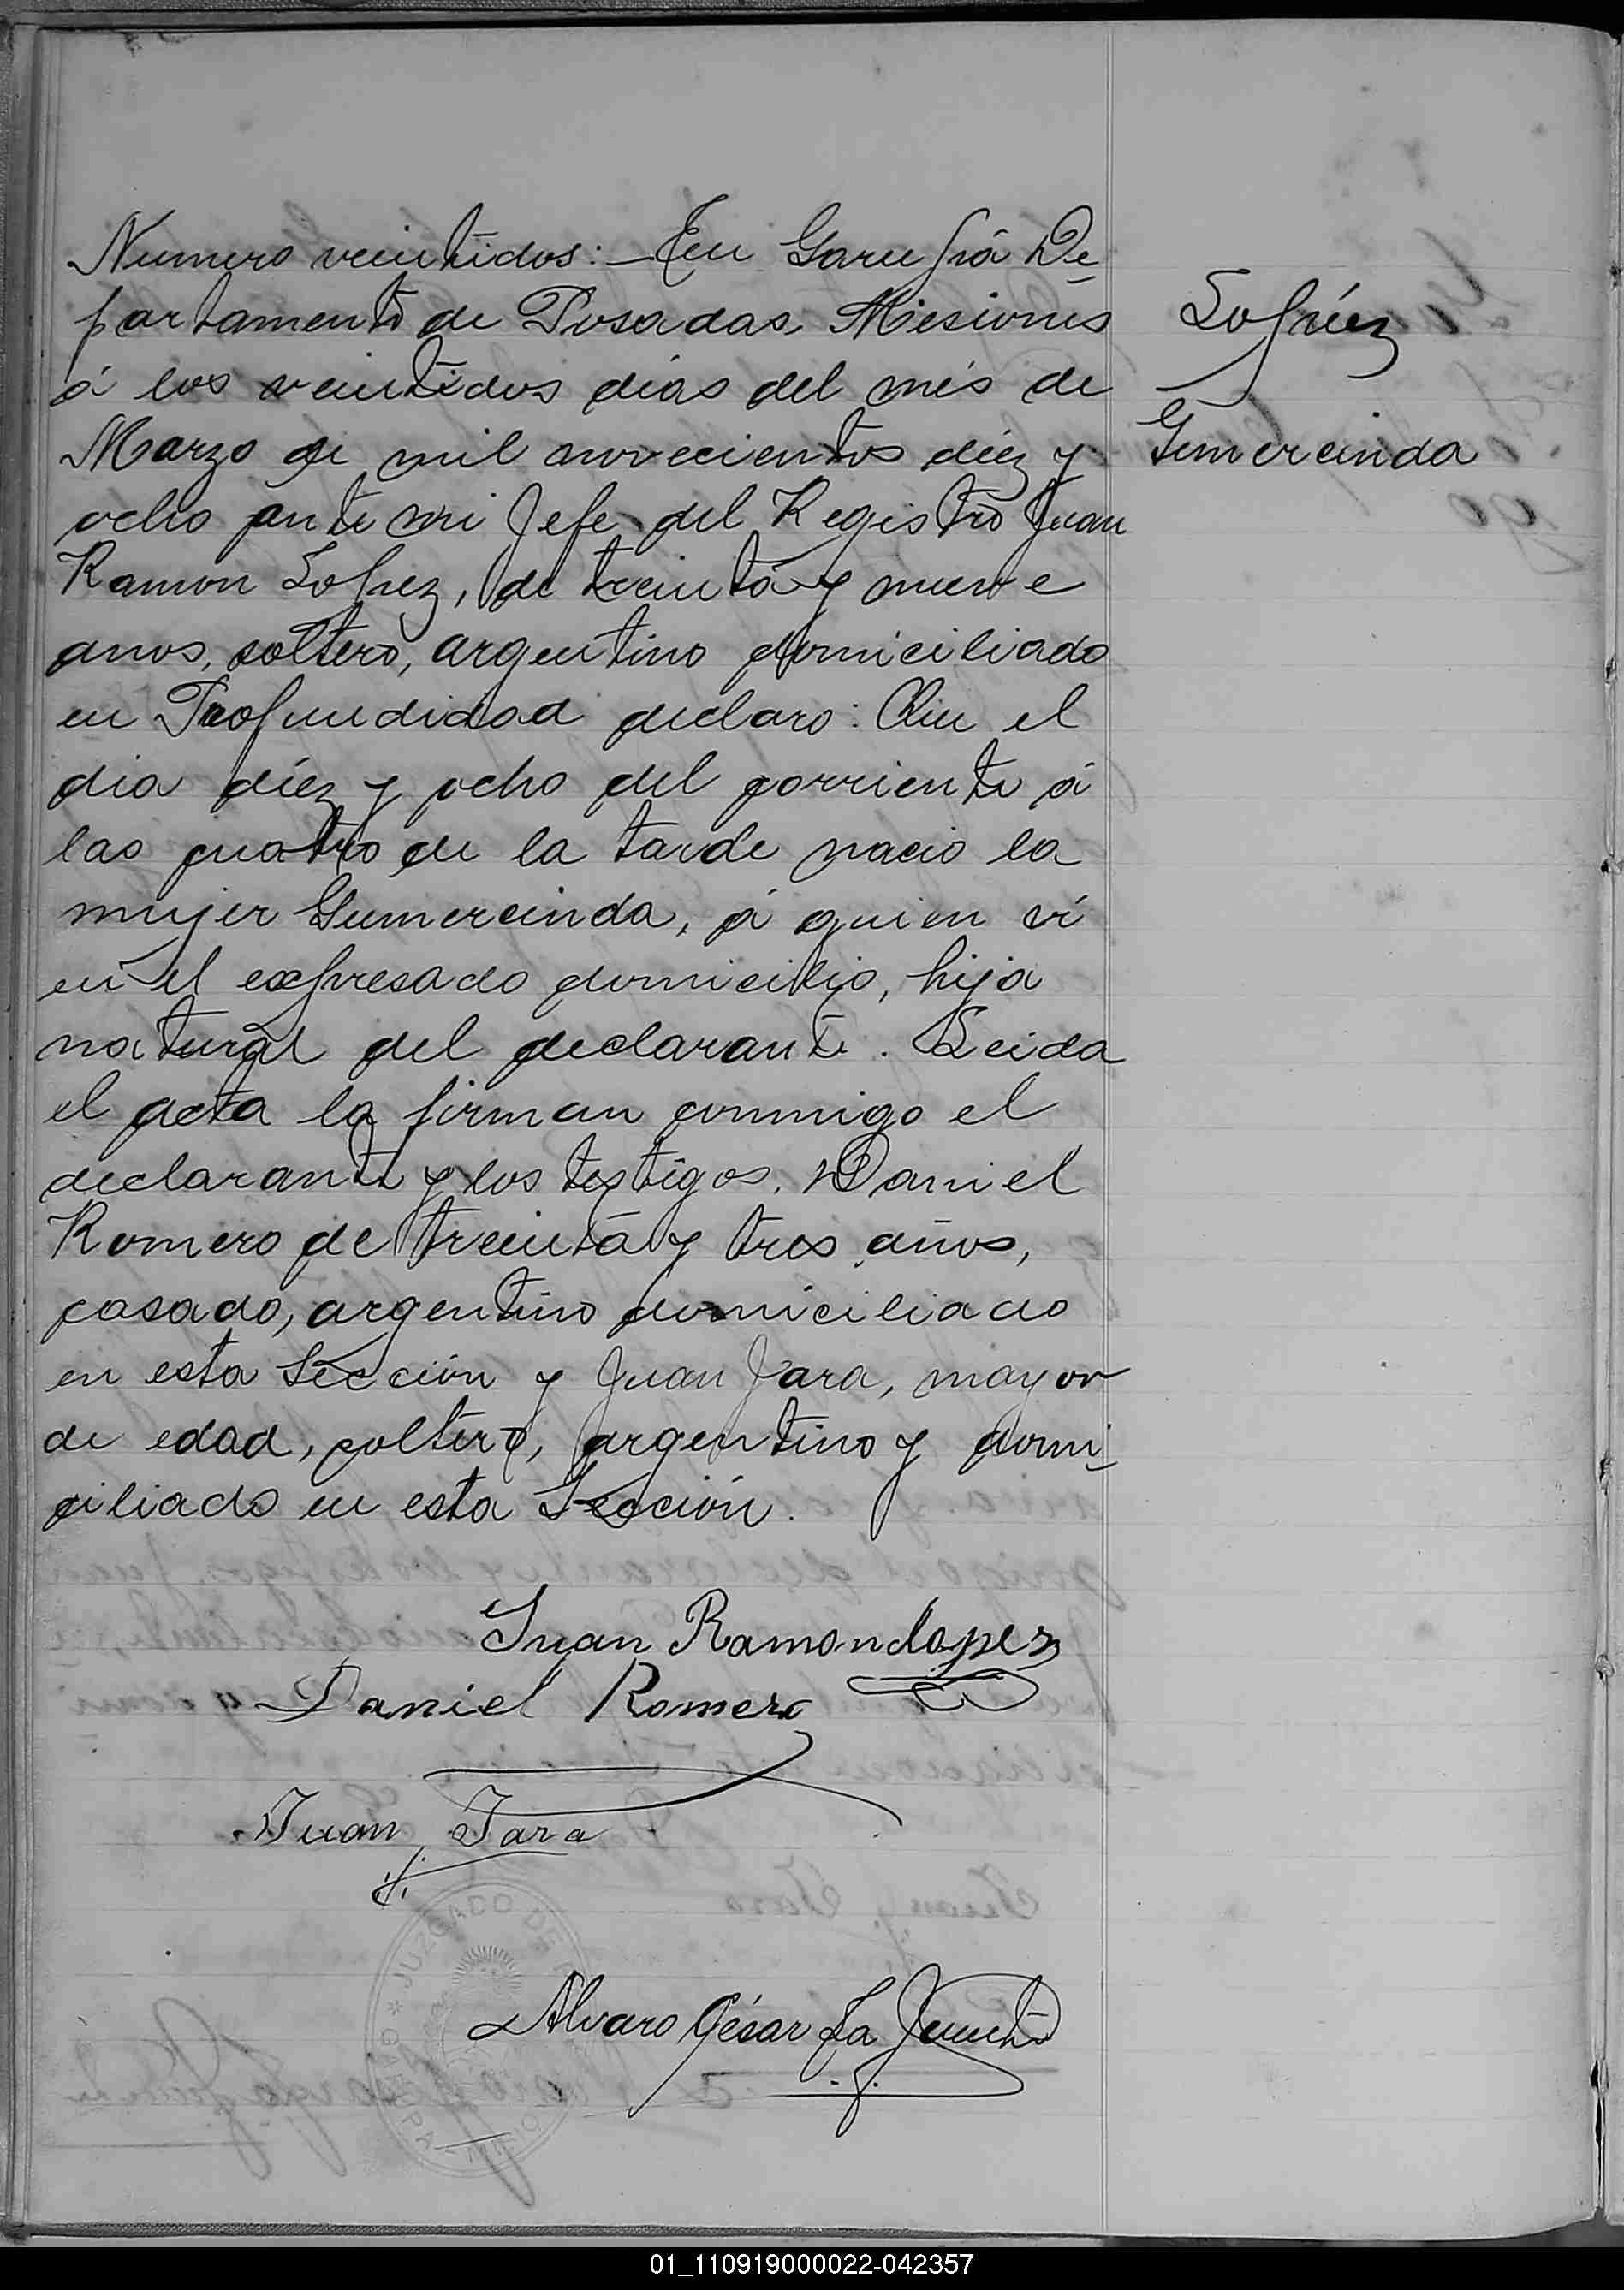 Numero veintidos: – En Garupá De-
partamento de Posadas Misiones
á los veintidos dias del més de
Marzo de mil novecientos diéz y
ocho ante mi Jefe del Registro Juan
Ramon Lopez, de treinta y nueve
anos, soltero, argentino domiciliado
en Profundidad declaro: Que el
dia diéz y ocho del corriente á
las cuatro de la tarde nacio la
mujer Gumercinda, á quien ví
en el expresado domicilio, hija
natural del declarante. Leida
el acta la firman conmigo el
declarante y los testigos, Daniel
Romero de treinta y tres años,
casado, argentino domiciliado
en esta Sección y Juan Jara, mayor
de edad, soltero, argentino y domi-
ciliado en esta Sección.
Lopéz
Gumercinda
Juan Ramon Lopez
Daniel Romero
Juan Jara
JUZGADO DE
GARUPA
Alvaro César La
01_110919000022-042357